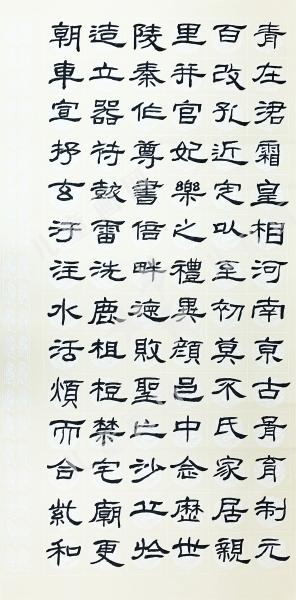 青在涒霜皇相河南京古胥育制元
百改孔近定以至初莫不氏家居親
里并官妃樂之禮異顏邑中念歷世
陵秦作尊書倍畔德敗聖亡沙丘於
造立器符鼓雷洗鹿柤梪禁宅廟更
朝車宣抒玄汙注水活煩而合紫和